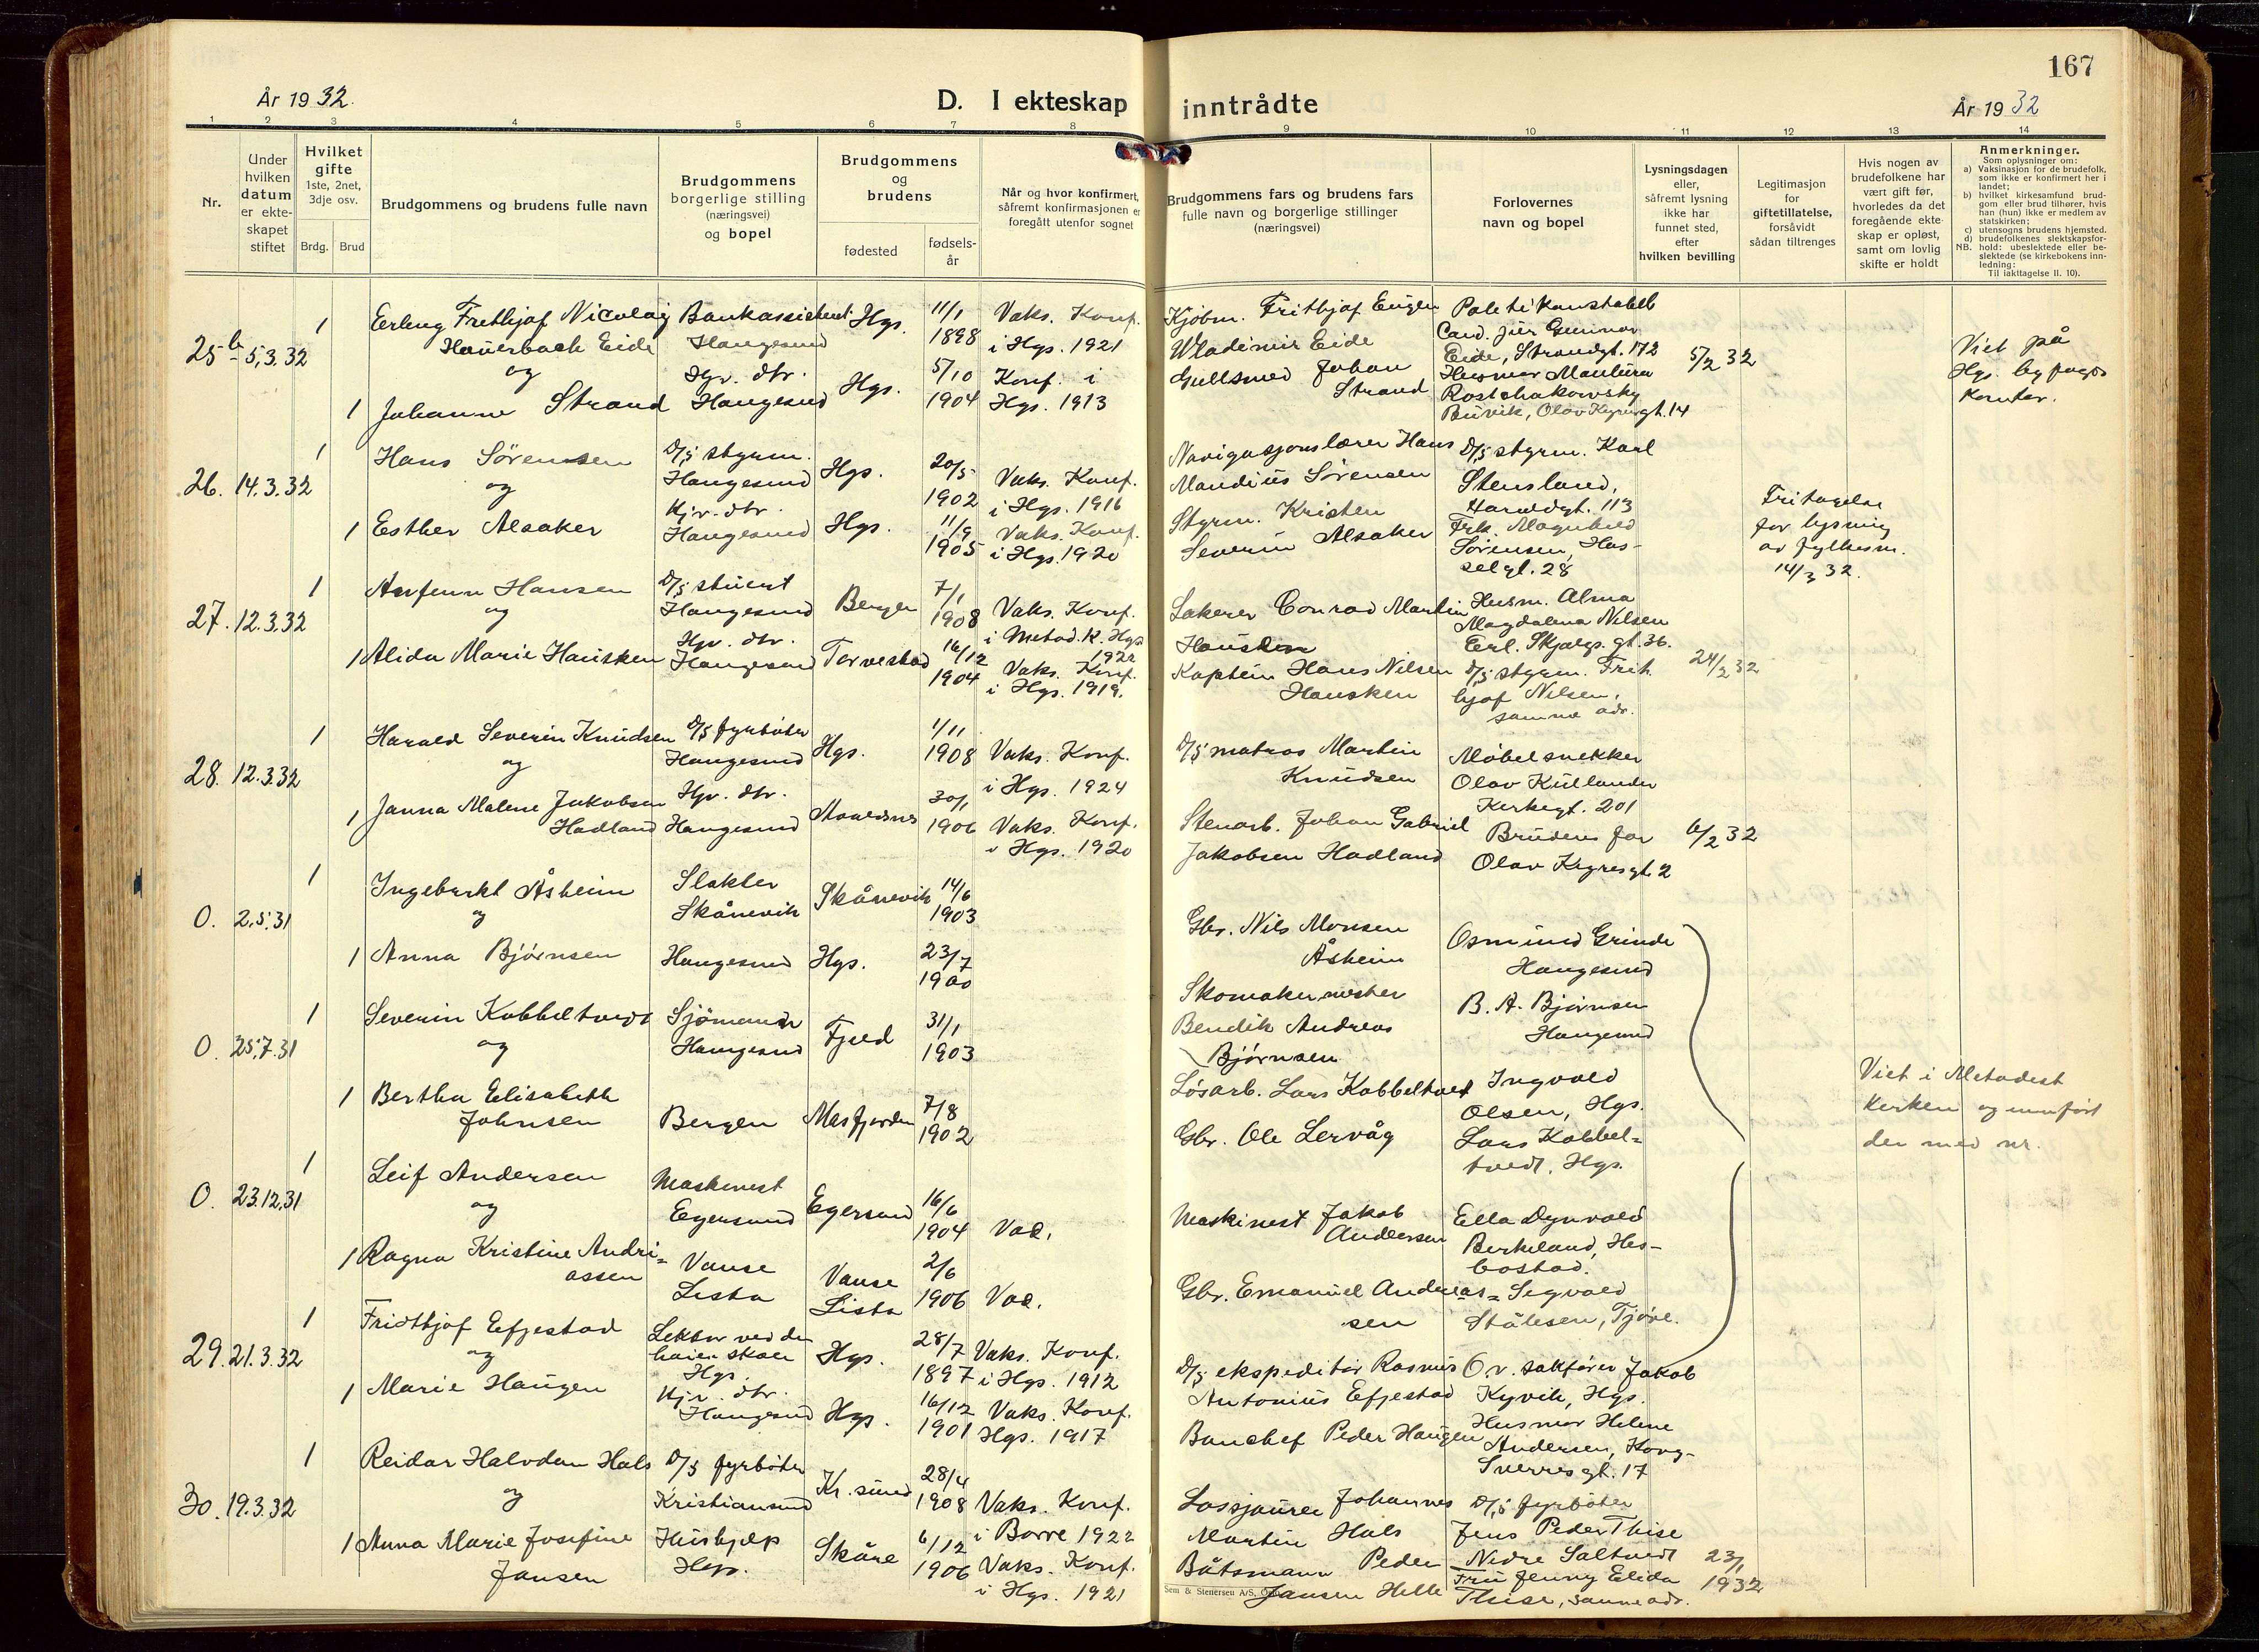 167
År 1932.
D. I ekteskap inntrådte
År 1932
1 2 3 4 5 6 7 8 9 10 11 12 13 14
Nr.
Under hvilken datum er ekteskapet stiftet
Hvilket gifte
1ste, 2net, 3dje osv.
Brdg. Brud
Brudgommens og brudens fulle navn
Brudgommens borgerlige stilling (næringsvei) og bopel
Brudgommens og brudens
fødested
fødsels-år
Når og hvor konfirmert, såfremt konfirmasjonen er foregått utenfor sognet
Brudgommens fars og brudens fars fulle navn og borgerlige stillinger (næringsvei)
Forlovernes navn og bopel
Lysningsdagen eller, såfremt lysning ikke har funnet sted, efter hvilken bevilling
Legitimasjon for giftetillatelse, forsåvidt sådan tiltrenges
Hvis nogen av brudefolkene har vært gift før, hvorledes da det foregående ekteskap er opløst, samt om lovlig skifte er holdt
Anmerkninger.
Som oplysninger om:
a) Vaksinasjon for de brudefolk, som ikke er konfirmert her i landet;
b) hvilket kirkesamfund brudgom eller brud tilhører, hvis han (hun) ikke er medlem av statskirken;
c) utensogns brudens hjemsted.
d) brudefolkenes slektskapsforhold: ubeslektede eller beslektede (se kirkebokens innledning:
NB. Til iakttagelse II. 10).
25 b 5.3.32
1 Erling Frithjof Nicolay Hauerbach Eide
og
1 Johanne Strand
Bankassistent Haugesund
Hjv. dtr. Haugesund
Hgs. 11/1 1898
Hgs. 5/10 1904
Vaks. Konf. i Hgs. 1921
Konf. i Hgs. 1913
Kjøbm. Frithjof Eugen Wladimir Eide
Gullsmed Johan Strand
Politikonstabel Cand. jur Gunnar Eide, Strandgt. 172
Husmor Maulina Rostchakowsky Buvik, Olav Kyrresgt. 14
5/2 32
Viet på Hgs. byfogd kontor.
26. 14.3.32
1 Hans Sørensen
og
1 Esther Alsaker
D/S styrm. Haugesund
Hjv. dtr. Haugesund
Hgs. 20/5 1902
Hgs. 11/9 1905
Vaks. Konf. i Hgs. 1916
Vaks. Konf. i Hgs. 1920
Navigasjonslærer Hans Mandius Sørensen
Styrm. Kristen Severin Alsaker
D/S styrm. Karl Stensland, Haraldgt. 113
Frk. Magnhild Sørensen, Hasselgt. 28
Fritagelse for lysning av fylkesm. 14/3 32.
27. 12.3.32
1 Arnfinn Hansen
og
1 Alida Marie Hausken
D/S stuert Haugesund
Hjv. dtr. Haugesund
Bergen 7/1 1908
Torvestad 16/12 1904
Vaks. Konf. i Metod. K. Hgs. 1922
Vaks. Konf. i Hgs. 1919.
Lakerer Conrad Martin
Kaptein Hans Nilsen Hausken
Husm. Alma Magdalena Nilsen Erl. Skjalgs. gt. 36.
D/S styrm. Frithjof Nilsen, samme adr.
24/2 32
28. 12.3.32
1 Harald Severin Knudsen
og
1 Janna Malene Jakobsen Hadland
D/S fyrbøter Haugesund
Hjv. dtr. Haugesund
Hgs. 1/11 1908
Avaldsnes 30/1 1906
Vaks. Konf. i Hgs. 1924
Vaks. Konf. i Hgs. 1920
D/S matros Martin Knudsen
Stenarb. Johan Gabriel Jakobsen Hadland
Møbelsnekker Olav Kullander Kirkegt. 201
Brudens far Olav Kyrresgt. 2
6/2 32
0. 2.5.31
1 Ingebrikt Åsheim
og
1 Anna Bjørnsen
Slakter Skånevik
Haugesund
Skånevik 14/6 1903
Hgs. 23/7 1900
Gbr. Nils Monsen Åsheim
Skomakermester Bendik Andreas Bjørnsen
Osmund Grinde Haugesund
B. A. Bjørnsen Haugesund
0. 25.7.31
1 Severin Kobbeltvedt
og
1 Bertha Elisabeth Johnsen
Sjømann Haugesund
Bergen
Fjeld 31/1 1903
Masfjorden 7/8 1902
Løsarb. Lars Kobbeltvedt
Gbr. Ole Lervåg
Ingvald Olsen, Hgs.
Lars Kobbeltvedt, Hgs.
Viet i Metodistkirken og innført der med nr.
0. 23.12.31
1 Leif Andersen
og
1 Ragna Kristine Andreassen
Maskinist Egersund
Vanse Lista
Egersund 16/6 1904 Vac.
Vanse Lista 2/6 1906 Vac.
Maskinist Jakob Andersen
Gbr. Emanuel Andreassen
Ella Dynvald Berkeland,
Sigvald Stålesen, Tjøre.
29. 21.3.32
1 Fridthjof Efjestad
og
1 Marie Haugen
Lektor ved den høiere skole Hgs.
Hjv. dtr. Haugesund
Hgs. 28/7 1897
Hgs. 16/12 1901
Vaks. Konf. i Hgs. 1912
Vaks. Konf. Hgs. 1917
D/S ekspeditør Rasmus Antonius Efjestad
Banchef Peder Haugen
O.r. sakfører Jakob Kyvik, Hgs.
Husmor Helene Andersen, Kong-Sverresgt. 17
30. 19.3.32
1 Reidar Halvdan Hals
og
1 Anna Marie Josefine Jansen
D/S fyrbøter Kristiansund
Hushjelp Hgs.
Kr. sund 28/4 1908
Skåre 6/12 1906
Vaks. Konf. i Borre 1922
Vaks. Konf. i Hgs. 1921
Johannes Martin Hals
Båtsmann Peder Jansen Helle
D/S fyrbøter Jens Peder Thise Nedre Saltvedt
Fru Jenny Elida Thise, samme adr.
23/1 1932
Sem & Stenersen A/S, Oslo